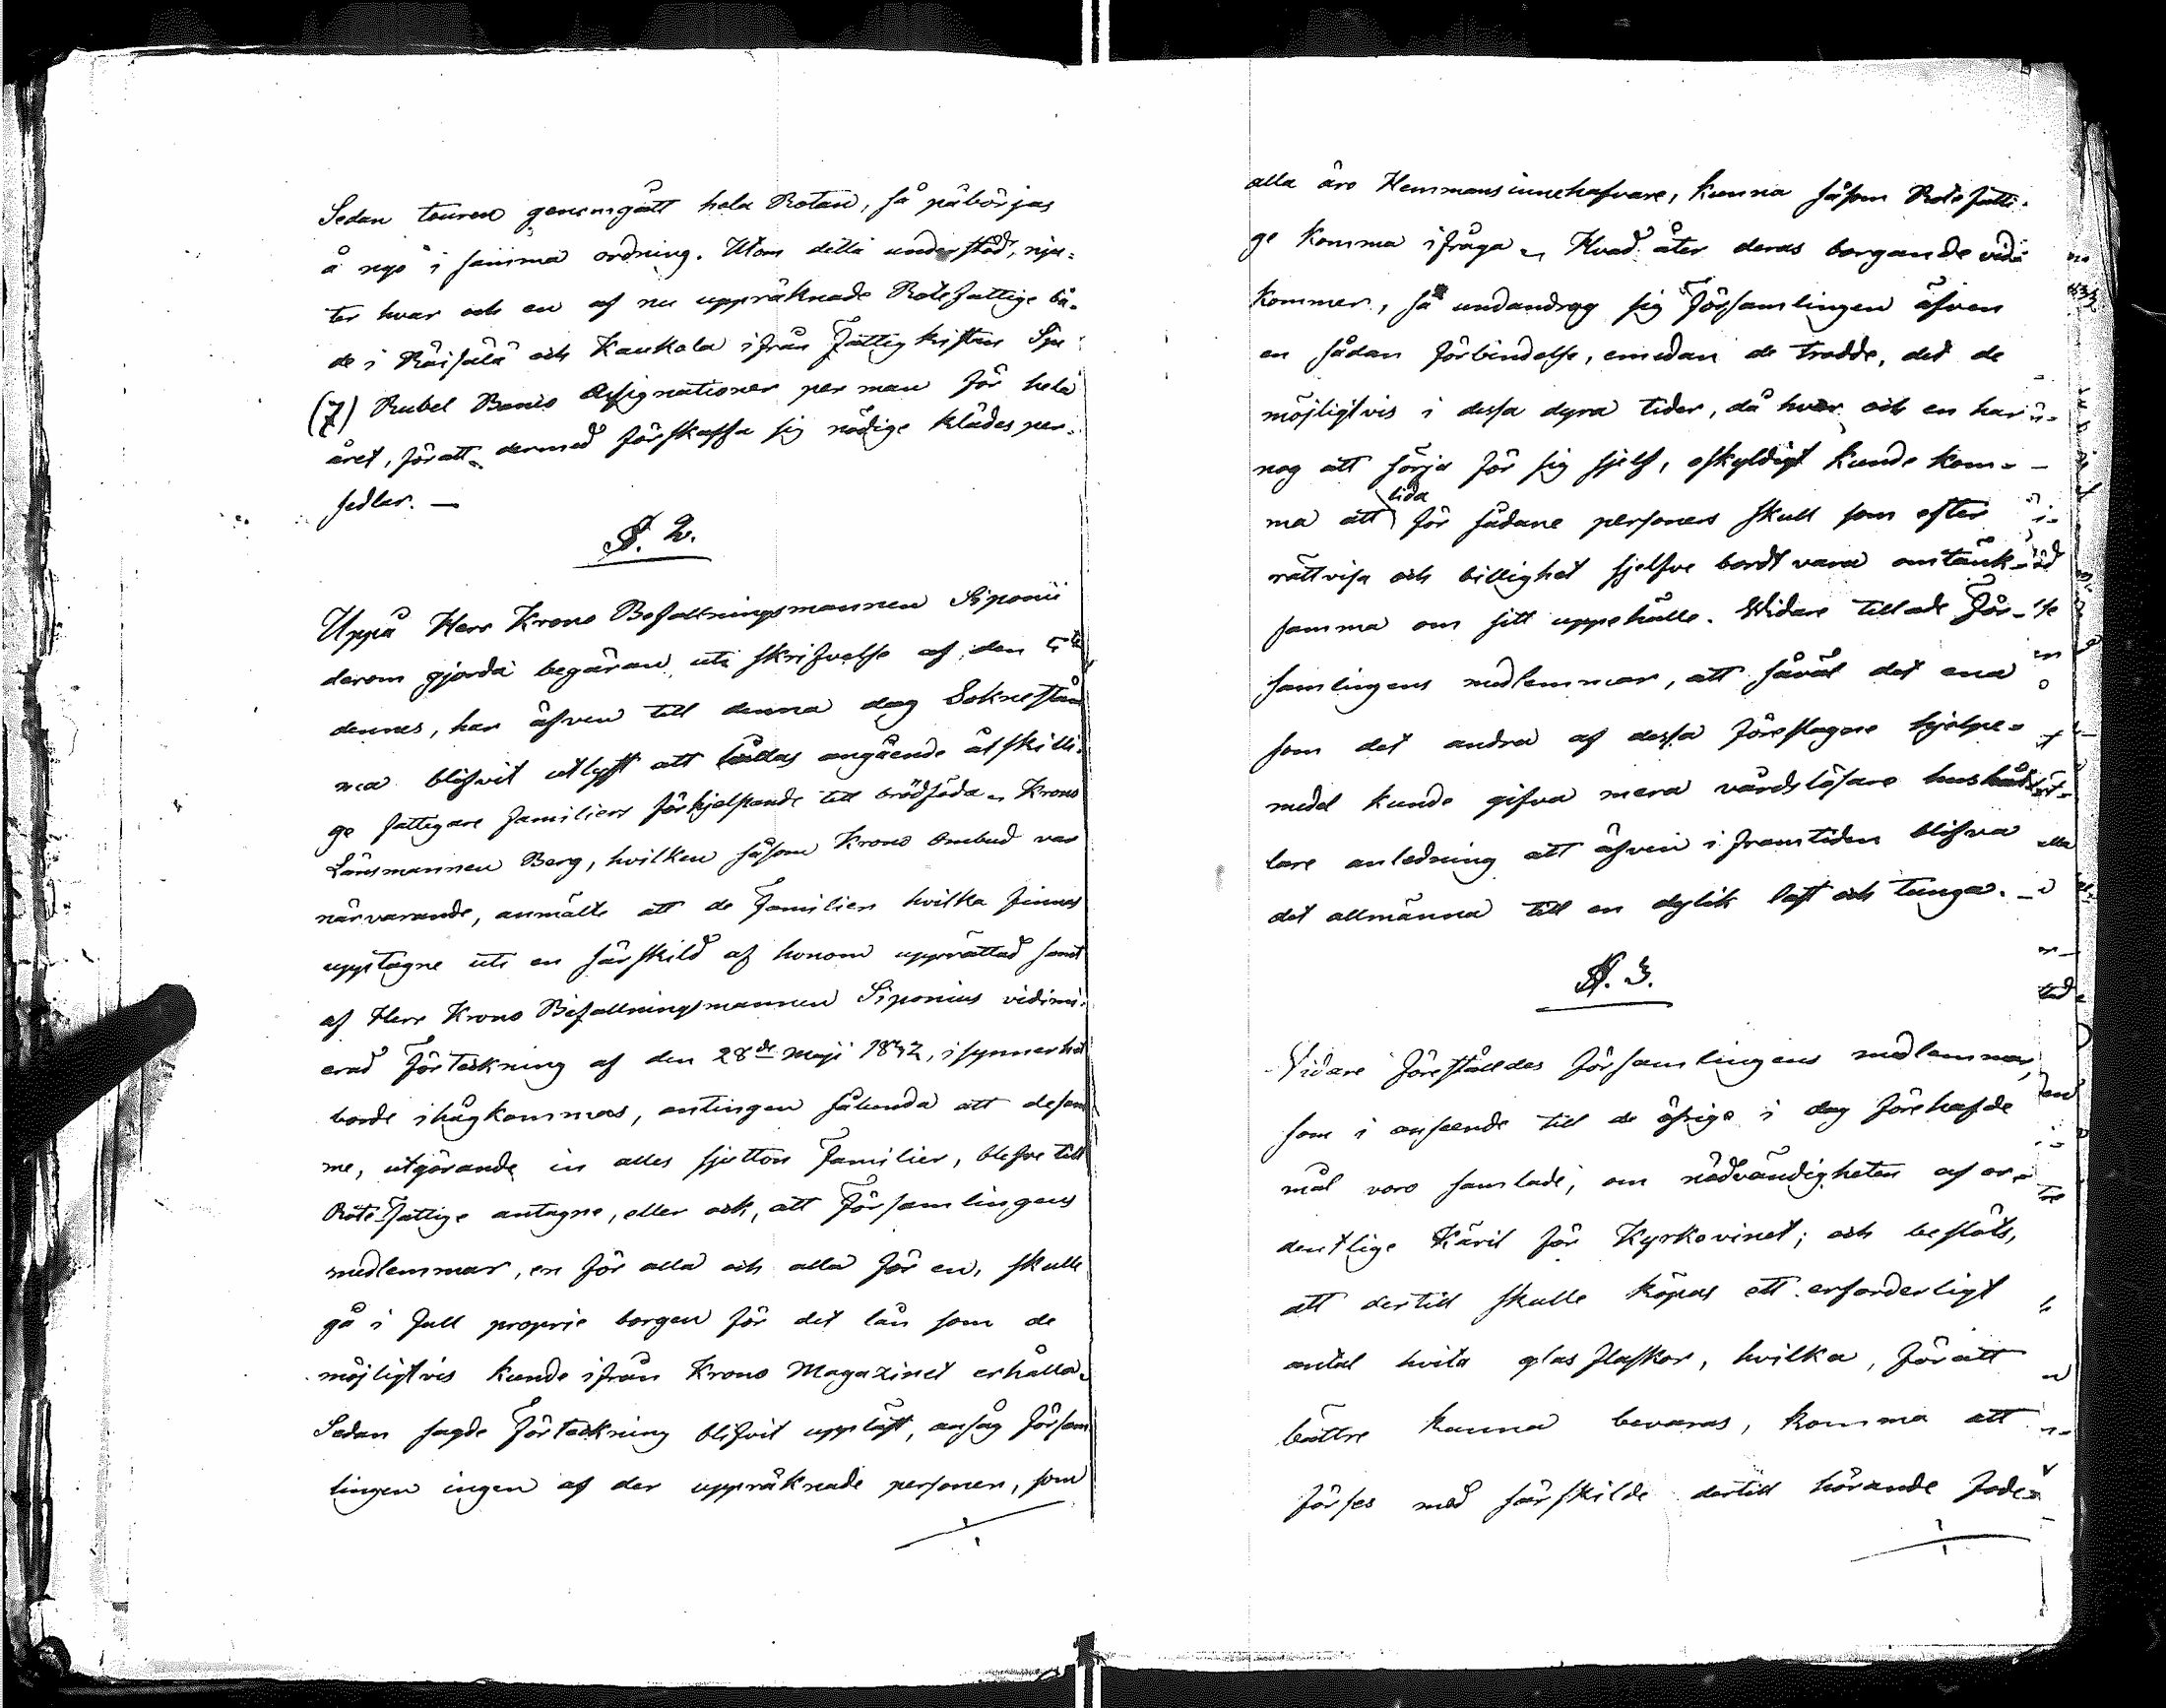 Sedan touren genomgått hela Rotan, så påbörjas
å nyo i samma ordning. Utom detta understöd, nju-
ter hvar och en af nu uppräknade Rotefattige bå-
de i Räisälä och Kaukola ifrån Fattigkistan Sju
(7) Rubel Banco Assignationer per man för hela
året, för att dermed förskaffa sig nödige klädesper-
sedlar. —
§. 2.
Uppå Herr Krono Befallningsmannen Siponii
derom gjorda begäran uti skrifvelse af den 5te
dennes, har äfven till denna dag Soknestäm
ma blifvit utlyst att hållas angående åtskilli-
ge fattigare familiers förhjelpande till brödföda. Krono
Länsmannen Berg, hvilken såsom Krono Ombud var
närvarande, anmälte att de Familier hvilka finnas
upptagne uti en särskild af honom upprättad samt
af Herr Krono Befallningsmannen Siponius vidimi-
erad Förteckning af den 28de Maji 1832, i synnerhet
borde ihågkommas, antingen sålunda att desam
me, utgörande in alles sjutton Familier, blefve till
Rote-Fattige antagne, eller ock, att Församlingens
medlemmar, en för alla och alla för en, skulle
gå i full proprie borgen för det lån som de
möjligtvis kunde ifrån Krono Magazinet erhålla.
Sedan sagde Förteckning blifvit uppläst, ansåg Försam
lingen ingen af der uppräknade personer, som
alla äro Hemmansinnehafvare, kunna såsom Rotefatti-
ge komma ifråga. Hvad åter deras borgande vid
kommer, så undandrog sig Församlingen äfven
en sådan förbindelse, emedan de trodde, det de
möjligtvis i dessa dyra tider, då hvar och en har
nog att sörja för sig sjelf, oskyldigt kunde kom-
ma att lida för sådane personers skull som efter
rättvisa och billighet sjelfve bordt vara omtänk-
samma om sitt uppehälle. Widare tillade För-
samlingens medlemmar, att såväl det ena
som det andra af dessa föreslagne hjelpe-
medel kunde gifva mera vårdslösare hushål-
lare anledning att äfven i framtiden blifva
det allmänna till en dylik last och tunga. —
§. 3.
Vidare föreställdes församlingens medlemmar,
som i anseende till de öfrige i dag förehafde
mål voro samlade, om nödvändigheten af or-
dentlige Käril för Kyrkovinet; och beslöts,
att dertill skulle köpas ett erforderligt
antal hvita glas flaskor, hvilka, för att
bättre kunna bevaras, komma att
förses med särskilde dertill hörande fode-